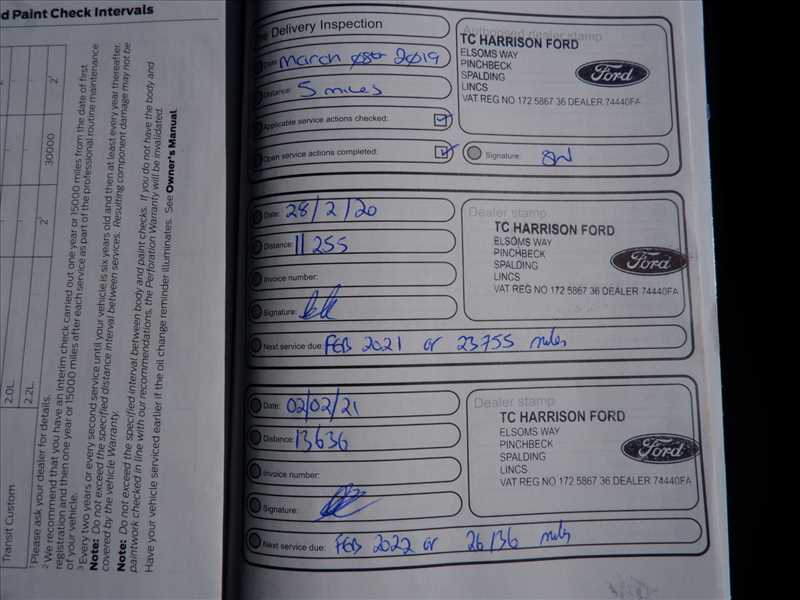 d Paint Check Intervals
2.0L
2.2L
2
30000
2
Transit Custom
1 Please ask your dealer for details.
2 We recommend that you have an interim check carried out one year or 15000 miles from the date of first
registration and then one year or 15000 miles after each service as part of the professional routine maintenance
of your vehicle.
3 Every two years or every second service until your vehicle is six years old and then at least every year thereafter.
Note: Do not exceed the specified distance interval between services. Resulting component damage may not be
covered by the vehicle Warranty.
Note: Do not exceed the specified interval between body and paint checks. If you do not have the body and
paintwork checked in line with our recommendations, the Perforation Warranty will be invalidated.
Have your vehicle serviced earlier if the oil change reminder illuminates. See Owner's Manual.
Delivery Inspection
Date: March 2019
Distance: 5 miles
Applicable service actions checked:
Open service actions completed:
Authorised dealer stamp
TC HARRISON FORD
ELSOMS WAY
PINCHBECK
SPALDING
LINCS
VAT REG NO 172 5867 36 DEALER 74440FA
Ford
Signature:
Date: 28/2/20
Distance: 11255
Invoice number:
Signature:
Next service due: FEB 2021 or 23755 miles
Dealer stamp
TC HARRISON FORD
ELSOMS WAY
PINCHBECK
SPALDING
LINCS
VAT REG NO 172 5867 36 DEALER 74440FA
Ford
Date: 02/02/21
Distance: 13636
Invoice number:
Signature:
Next service due: FEB 2022 or 26136 miles
Dealer stamp
TC HARRISON FORD
ELSOMS WAY
PINCHBECK
SPALDING
LINCS
VAT REG NO 172 5867 36 DEALER 74440FA
Ford